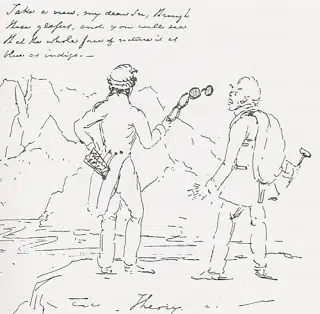 Take a view, my dear Sir, through
these glasses, and you will see
that the whole face of nature is as
blue as indigo. —
Theory